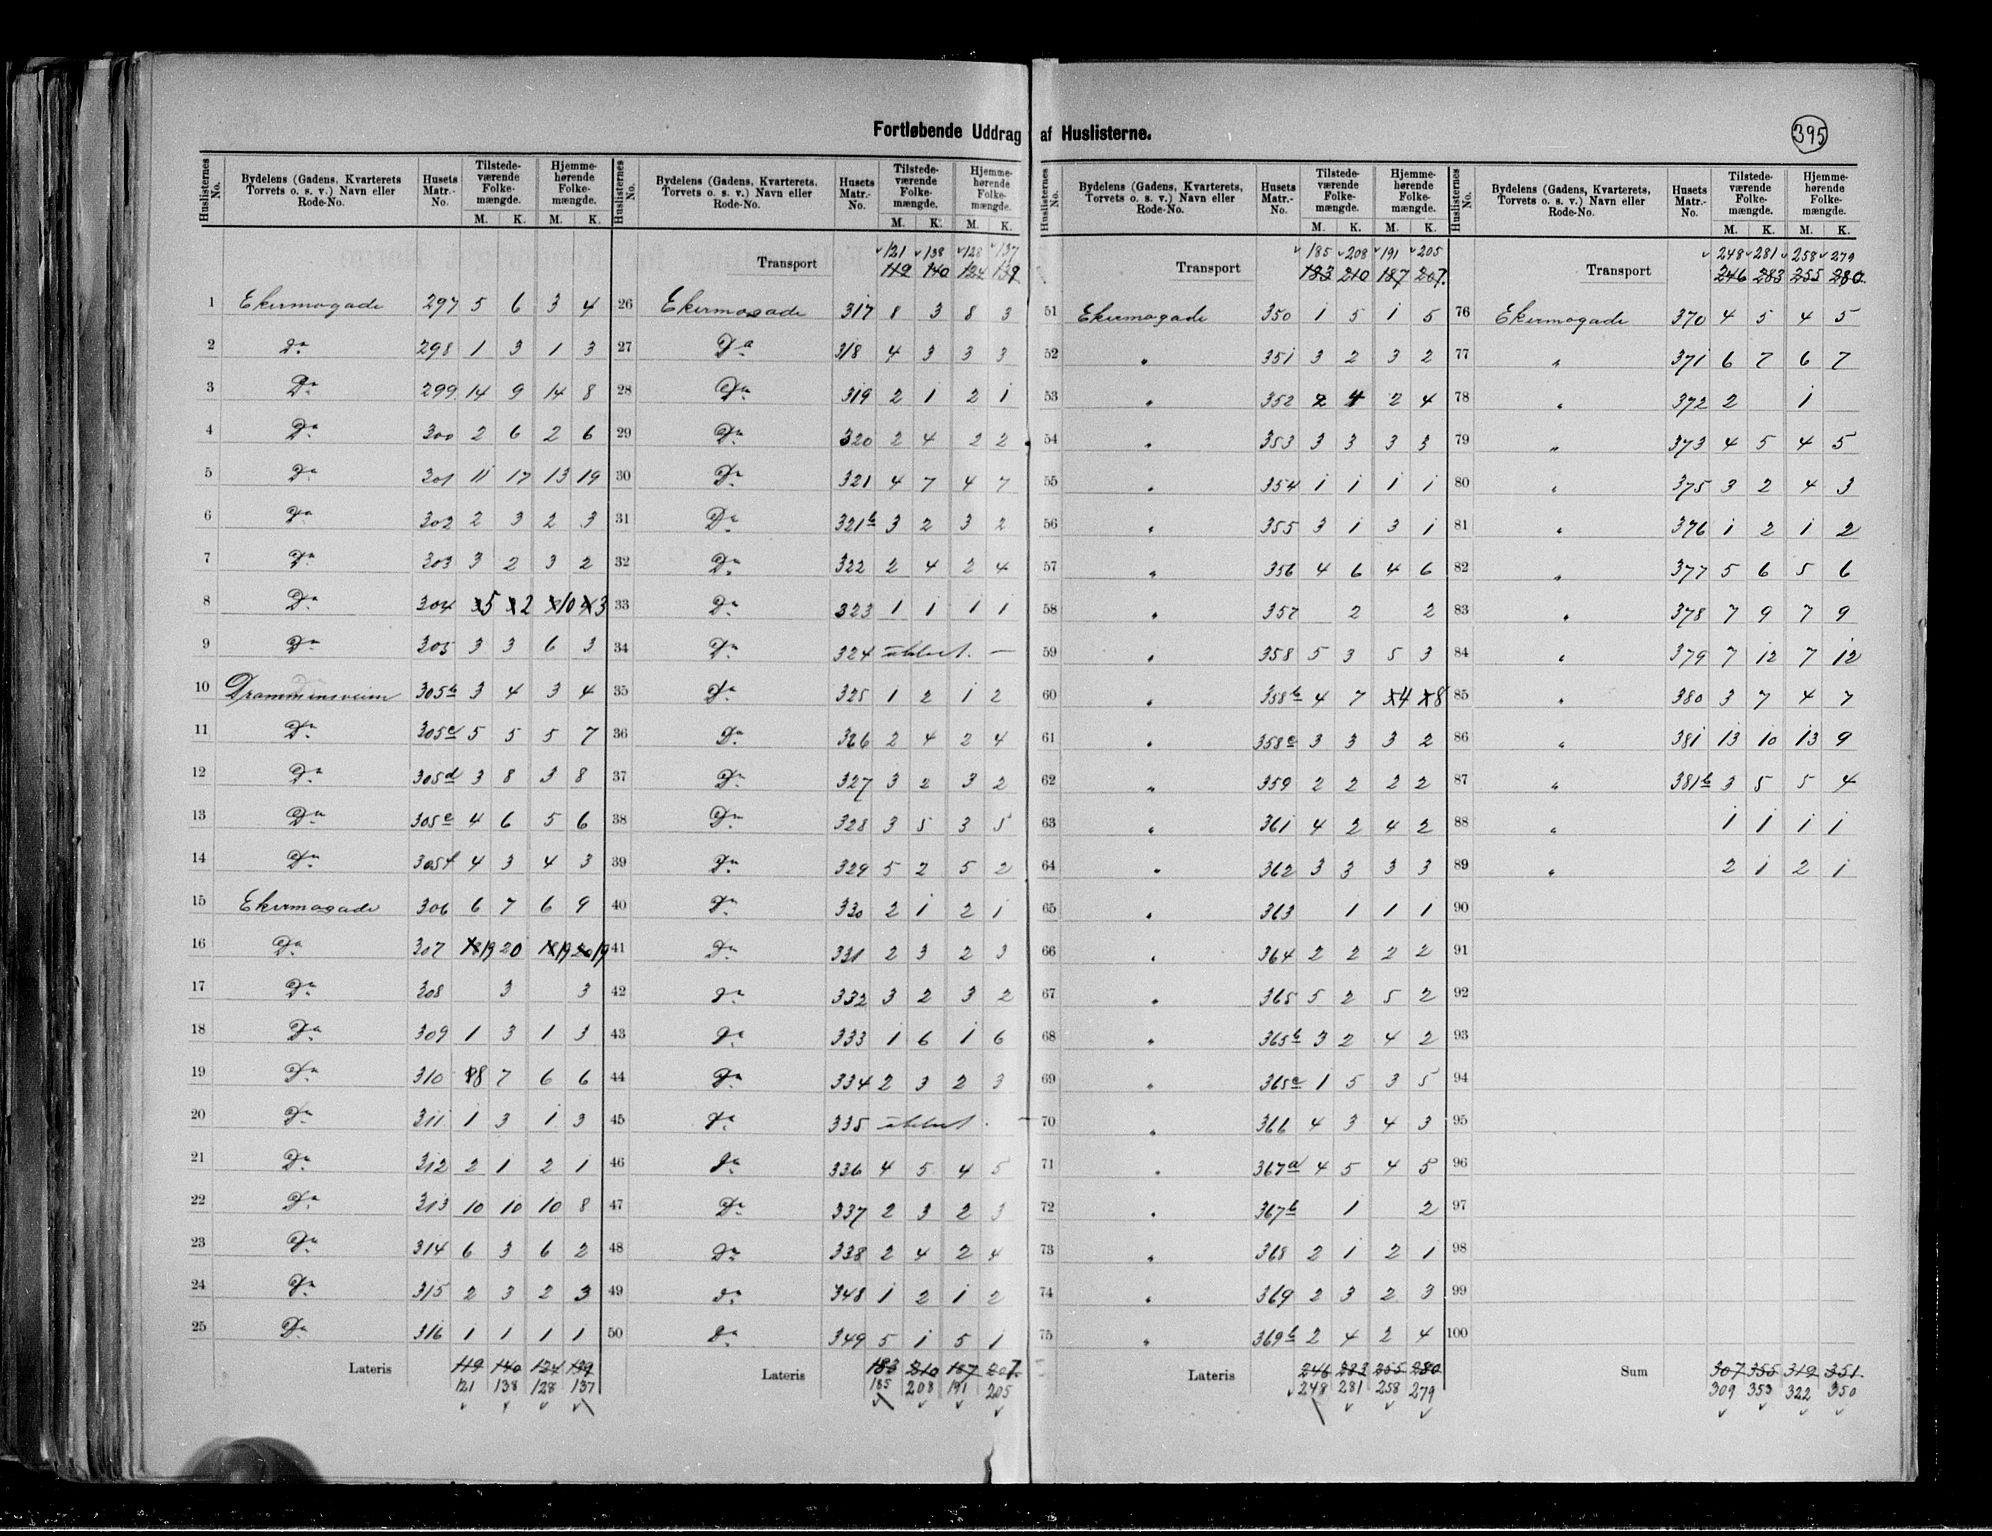 395
Fortløbende Uddrag af Huslisterne.
Huslisternes No. | Bydelens (Gadens, Kvarterets Torvets o. s. v.) Navn eller Rode-No. | Husets Matr.-No. | Tilstede-værende Folke-mængde. M. K. | Hjemme-hørende Folke-mængde. M. K.
1 Ekermogade 297 5 6 3 4
2 Do 298 1 3 1 3
3 Do 299 14 9 14 8
4 Do 300 2 6 2 6
5 Do 301 11 17 13 19
6 Do 302 2 3 2 3
7 Do 303 3 2 3 2
8 Do 304 5 2 10 3
9 Do 305 3 3 6 3
10 Drammensveien 305b 3 4 3 4
11 Do 305c 5 5 5 7
12 Do 305d 3 8 3 8
13 Do 305e 4 6 5 6
14 Do 305f 4 3 4 3
15 Ekermogade 306 6 7 6 9
16 Do 307 18 19 20 18 19 20 19
17 Do 308 3 3
18 Do 309 1 3 1 3
19 Do 310 8 7 6 6
20 Do 311 1 3 1 3
21 Do 312 2 1 2 1
22 Do 313 10 10 10 8
23 Do 314 6 3 6 2
24 Do 315 2 3 2 3
25 Do 316 1 1 1 1
Lateris 119 140 124 139
121 138 128 137
Huslisternes No. | Bydelens (Gadens, Kvarterets, Torvets o. s. v.) Navn eller Rode-No. | Husets Matr.-No. | Tilstede-værende Folke-mængde. M. K. | Hjemme-hørende Folke-mængde. M. K.
121 138 128 137
Transport 119 140 124 139
26 Ekermogade 317 8 3 8 3
27 Do 318 4 3 3 3
28 Do 319 2 1 2 1
29 Do 320 2 4 2 2
30 Do 321 4 7 4 7
31 Do 321b 3 2 3 2
32 Do 322 2 4 2 4
33 Do 323 1 1 1 1
34 Do 324 —
35 Do 325 1 2 1 2
36 Do 326 2 4 2 4
37 Do 327 3 2 3 2
38 Do 328 3 5 3 5
39 Do 329 5 2 5 2
40 Do 330 2 1 2 1
41 Do 331 2 3 2 3
42 Do 332 3 2 3 2
43 Do 333 1 6 1 6
44 Do 334 2 3 2 3
45 Do 335 —
46 Do 336 4 5 4 5
47 Do 337 2 3 2 3
48 Do 338 2 4 2 4
49 Do 348 1 2 1 2
50 Do 349 5 1 5 1
Lateris 183 210 187 207.
185 208 191 205
Huslisternes No. | Bydelens (Gadens, Kvarterets, Torvets o. s. v.) Navn eller Rode-No. | Husets Matr.-No. | Tilstede-værende Folke-mængde. M. K. | Hjemme-hørende Folke-mængde. M. K.
185 208 191 205
Transport 183 210 187 207.
51 Ekermogade 350 1 5 1 5
52 " 351 3 2 3 2
53 " 352 2 4 2 4
54 " 353 3 3 3 3
55 " 354 1 1 1 1
56 " 355 3 1 3 1
57 " 356 4 6 4 6
58 " 357 2 2
59 " 358 5 3 5 3
60 " 358b 4 7 4 8
61 " 358c 3 3 3 2
62 " 359 2 2 2 2
63 " 361 4 2 4 2
64 " 362 3 3 3 3
65 " 363 1 1 1
66 " 364 2 2 2 2
67 " 365 5 2 5 2
68 " 365b 3 2 4 2
69 " 365c 1 5 3 5
70 " 366 4 3 4 3
71 " 367a 4 5 4 5
72 " 367b 1 2
73 " 368 2 1 2 1
74 " 369 2 3 2 3
75 " 369b 2 4 2 4
Lateris 246 283 255 280
248 281 258 279
Huslisternes No. | Bydelens (Gadens, Kvarterets, Torvets o. s. v.) Navn eller Rode-No. | Husets Matr.-No. | Tilstede-værende Folke-mængde. M. K. | Hjemme-hørende Folke-mængde. M. K.
248 281 258 279
Transport 246 283 255 280.
76 Ekermogade 370 4 5 4 5
77 " 371 6 7 6 7
78 " 372 2 1
79 " 373 4 5 4 5
80 " 375 3 2 4 3
81 " 376 1 2 1 2
82 " 377 5 6 5 6
83 " 378 7 9 7 9
84 " 379 7 12 7 12
85 " 380 3 7 4 7
86 " 381 13 10 13 9
87 " 381b 3 5 5 4
88 " 1 1 1 1
89 " 2 1 2 1
90
91
92
93
94
95
96
97
98
99
100
Sum 307 355 319 351.
309 353 322 350